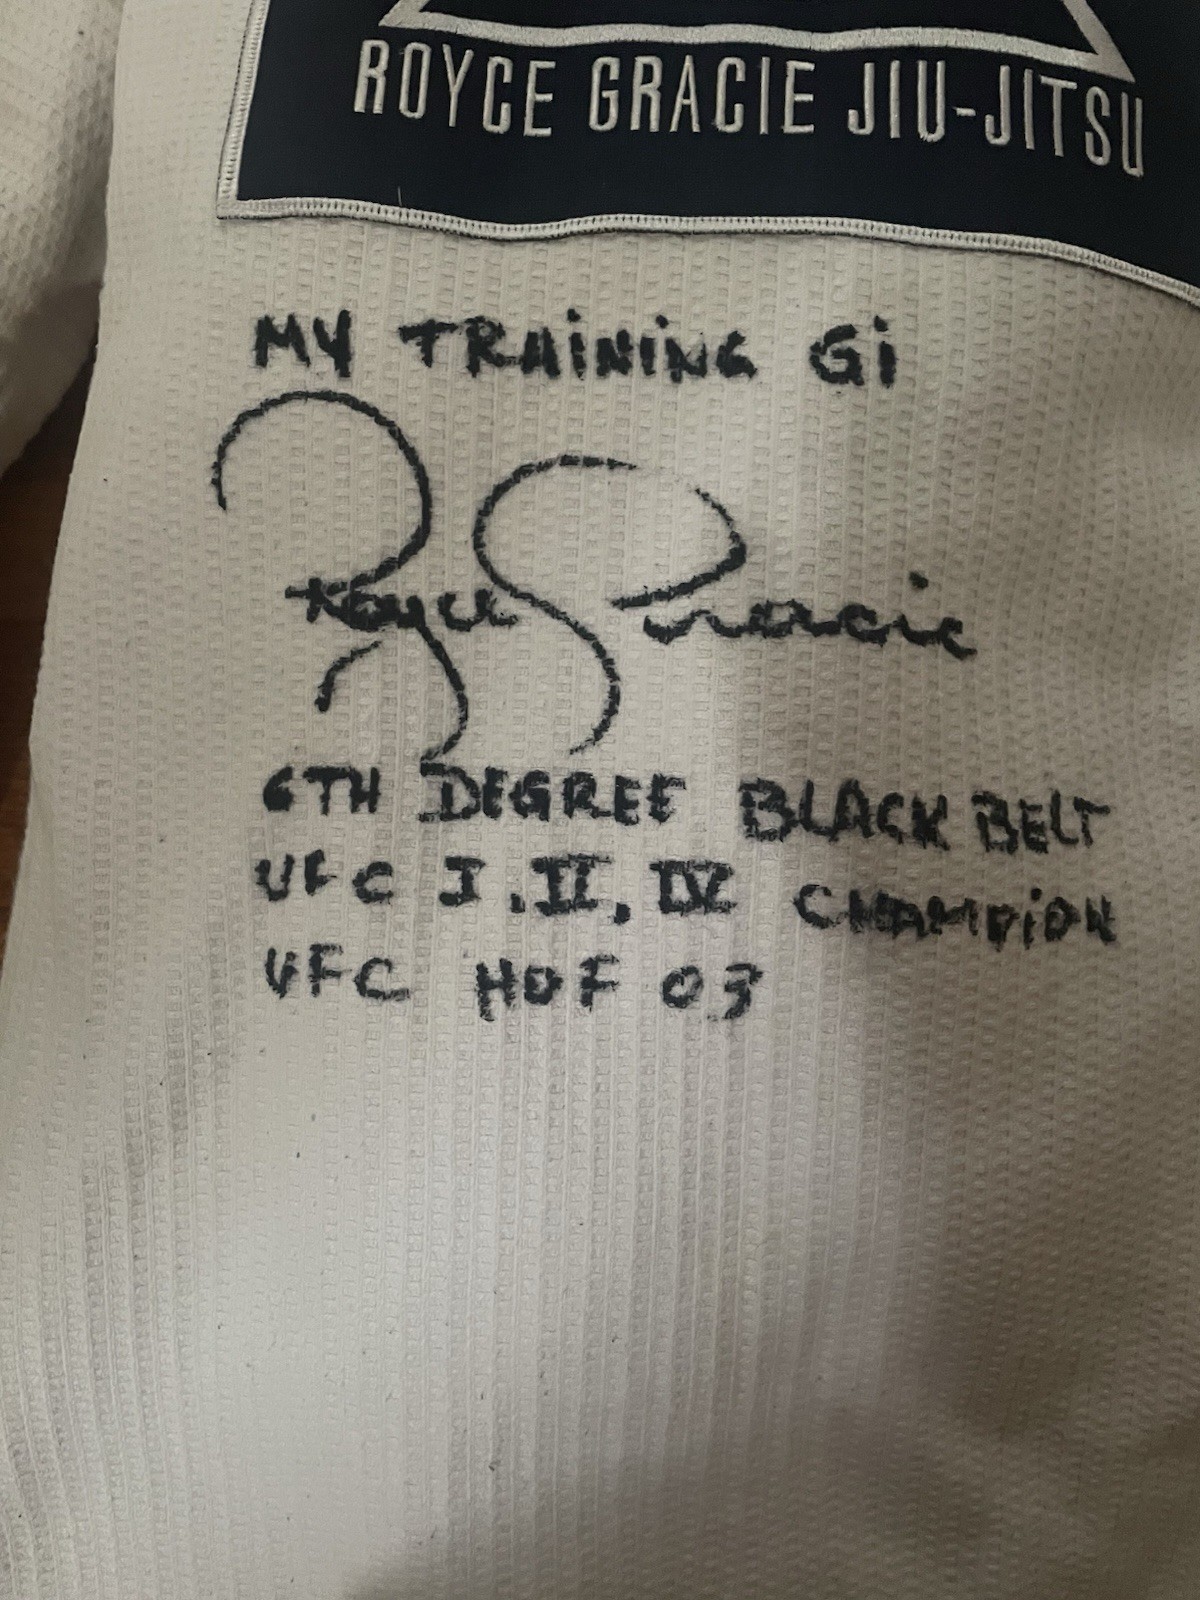 ROYCE GRACIE JIU-JITSU
MY TRAiNiNG Gi
Royce Gracie
6TH DEGREE BLACK BELT
UFC I.II, IV CHAMPiON
UFC HOF 03